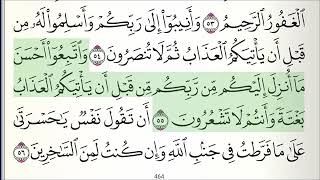 ٱلْغَفُورُ ٱلرَّحِيمُ ٥٣ وَأَنِيبُوٓا۟ إِلَىٰ رَبِّكُمْ وَأَسْلِمُوا۟ لَهُۥ مِن
قَبْلِ أَن يَأْتِيَكُمُ ٱلْعَذَابُ ثُمَّ لَا تُنصَرُونَ ٥٤ وَٱتَّبِعُوٓا۟ أَحْسَنَ
مَآ أُنزِلَ إِلَيْكُم مِّن رَّبِّكُم مِّن قَبْلِ أَن يَأْتِيَكُمُ ٱلْعَذَابُ
بَغْتَةً وَأَنتُمْ لَا تَشْعُرُونَ ٥٥ أَن تَقُولَ نَفْسٌ يَٰحَسْرَتَىٰ
عَلَىٰ مَا فَرَّطتُ فِى جَنۢبِ ٱللَّهِ وَإِن كُنتُ لَمِنَ ٱلسَّٰخِرِينَ ٥٦
464